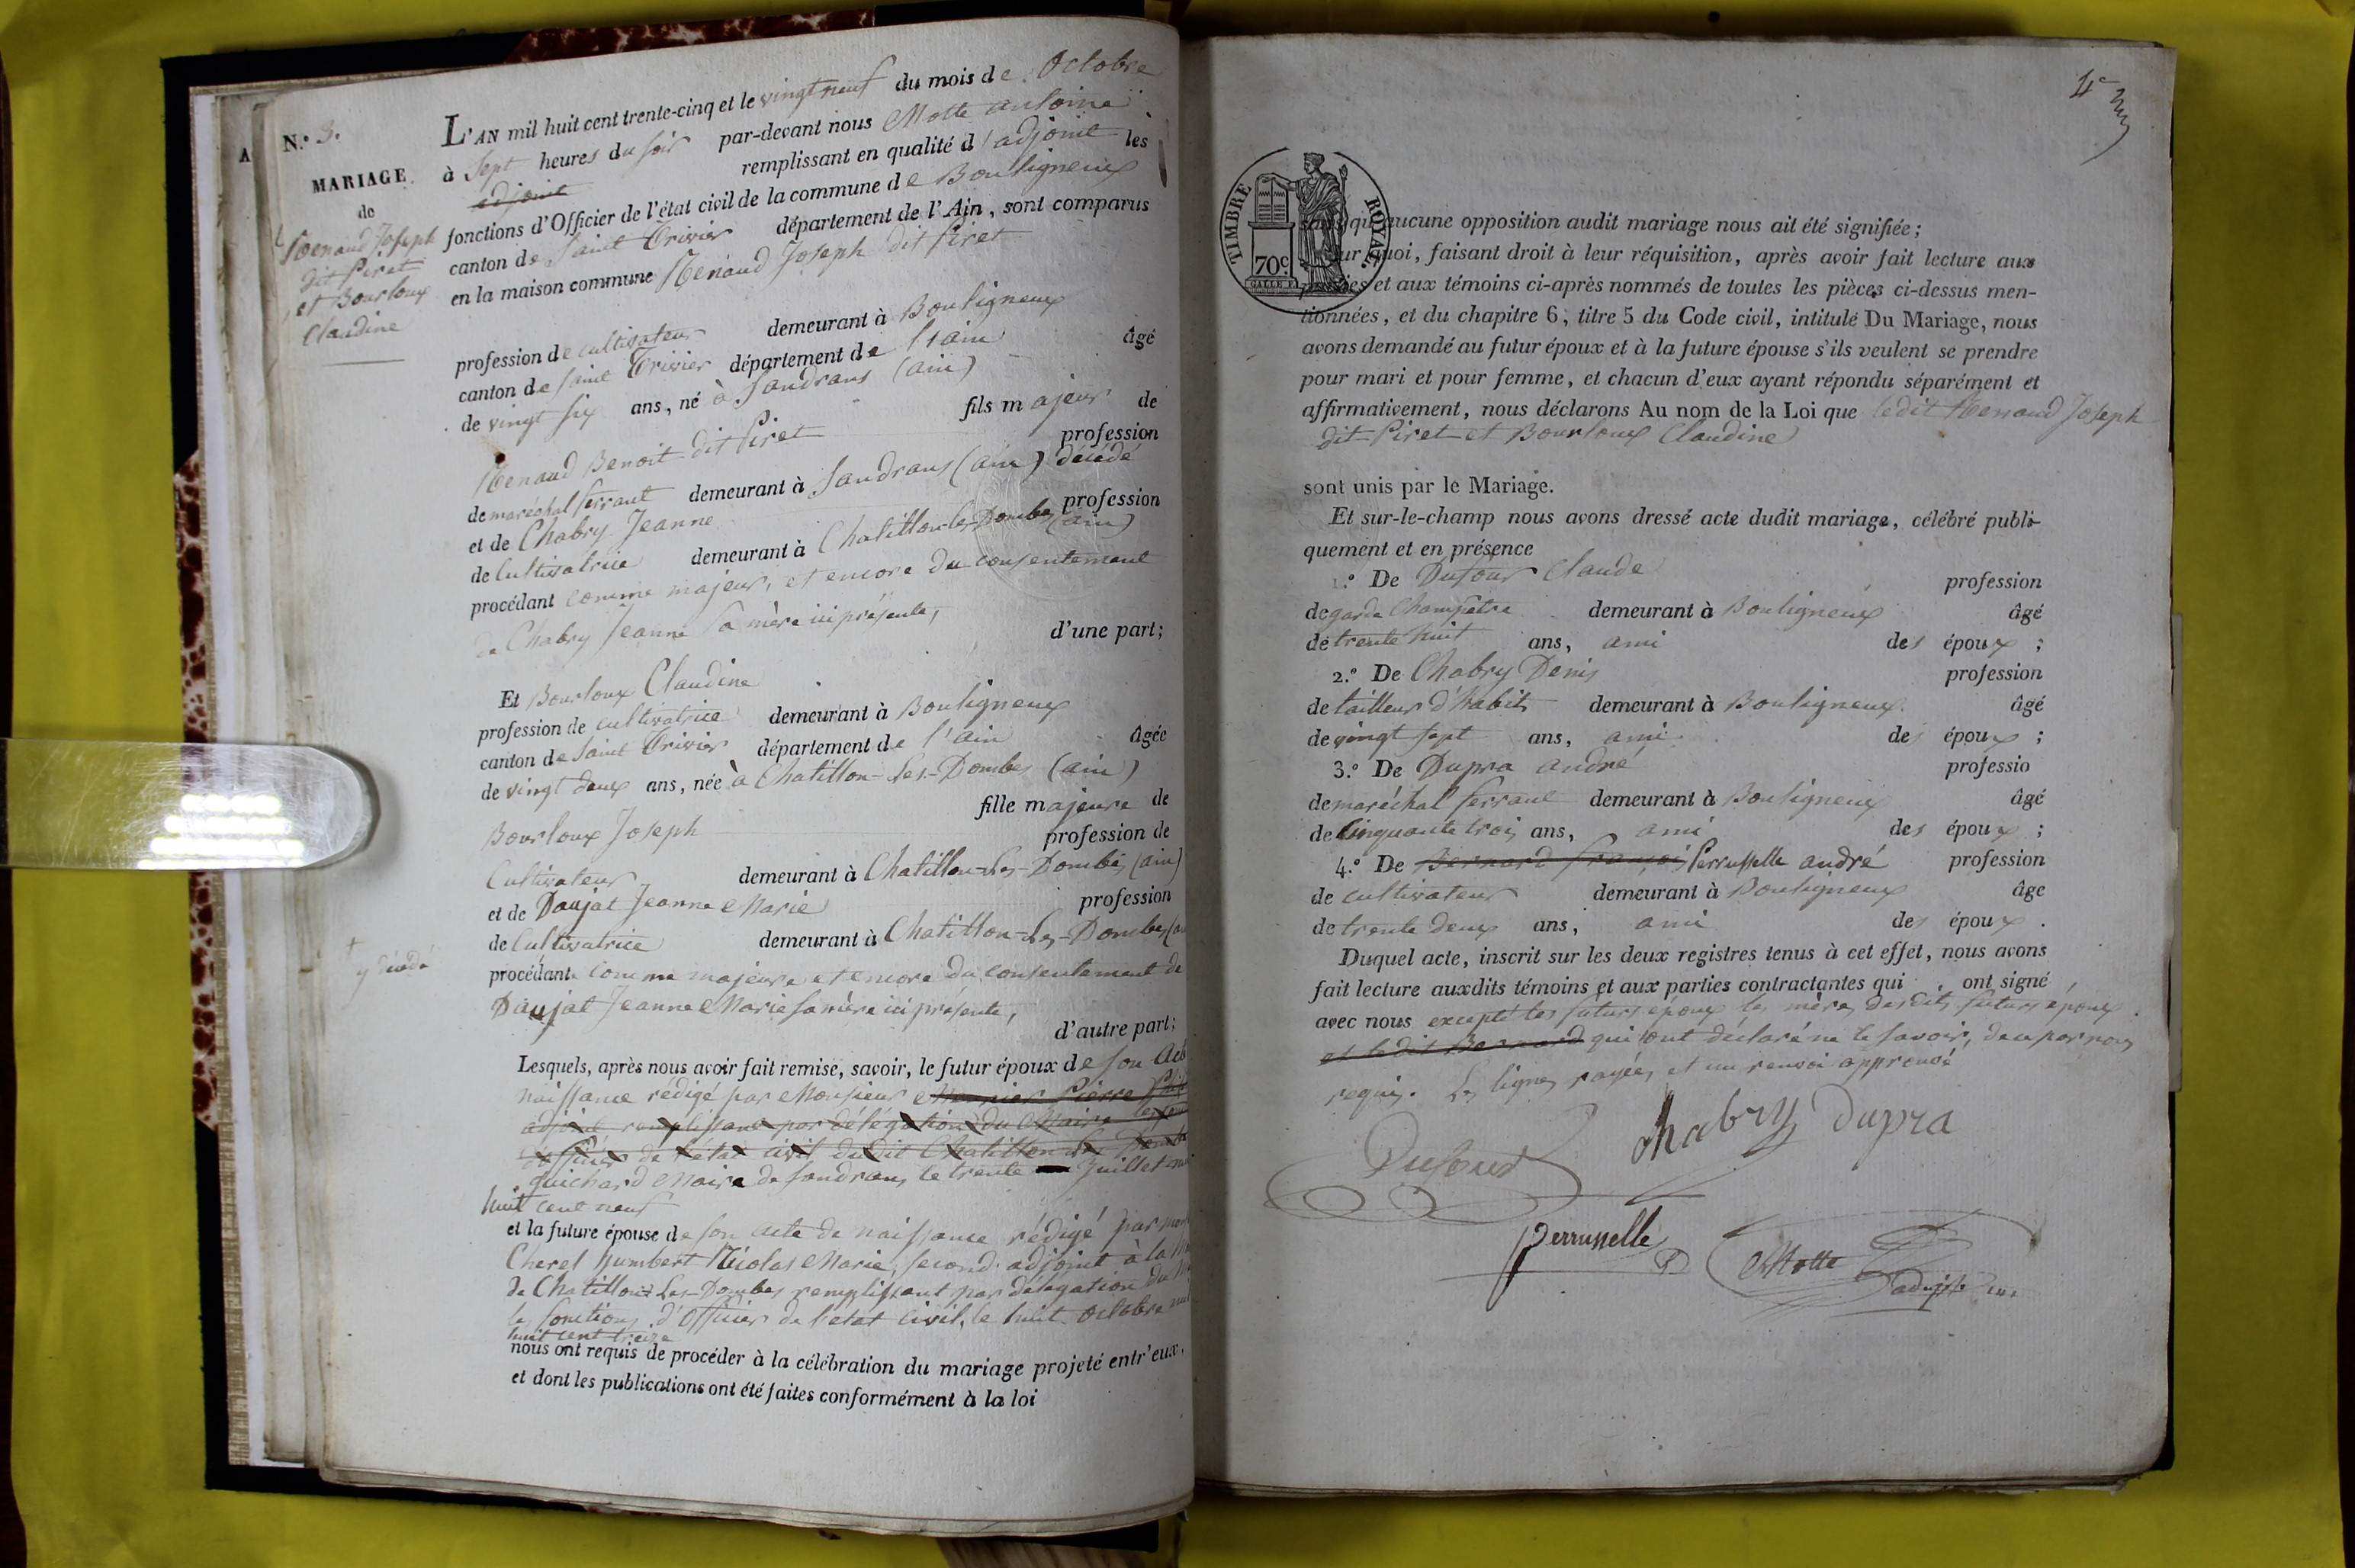 N.° 3.
MARIAGE
de
Renaud Joseph
dit Piret
et Bourloux
Claudine
L'AN mil huit cent trente-cinq et le vingt neuf du mois de Octobre
à Sept heures du soir par-devant nous Motte antoine
adjoint remplissant en qualité d'adjoint les
fonctions d'Officier de l'état civil de la commune de Bouligneux
canton de Saint Trivier département de l'Ain, sont comparus
en la maison commune Renaud Joseph dit Piret
profession de cultivateur demeurant à Bouligneux
canton de Saint Trivier département de l'ain âgé
de vingt six ans, né à Sandrans (ain)
fils majeur de
Renaud Benoit dit Piret profession
de maréchal ferrant demeurant à Sandrans (ain) décédé
et de Chabry Jeanne profession
de Cultivatrice demeurant à Chatillon les Dombes (ain)
procédant comme majeur, et encore du consentement
de Chabry Jeanne sa mère ici présente,
d'une part;
Et Bourloux Claudine
profession de cultivatrice demeurant à Bouligneux
canton de Saint Trivier département de l'ain âgée
de vingt deux ans, née à Chatillon-Les-Dombes (ain)
fille majeure de
Bourloux Joseph profession de
Cultivateur demeurant à Chatillon-Les-Dombes (ain)
et de Daujat Jeanne Marie profession
de Cultivatrice demeurant à Chatillon-Les-Dombes
+
y décédé
procédante comme majeure et encore du consentement de
Daujat Jeanne Marie sa mère ici présente,
d'autre part;
Lesquels, après nous avoir fait remise, savoir, le futur époux de son Acte
naissance rédigé par Monsieur Pierre
adjoint remplissant par délégation du Maire les
de l'état civil dudit Chatillon les
guichard Maire de Sandrans le trente Juillet mil
huit cent neuf
et la future épouse de son acte de naissance rédigé par
Cherel humbert Nicolas Marie, second adjoint à la
de Chatillon Les-Dombes remplissant par délégation du
les fonctions d'Officier de l'état Civil, le huit Octobre mil
huit cent treize
nous ont requis de procéder à la célébration du mariage projeté entr'eux,
et dont les publications ont été faites conformément à la loi
4e
TIMBRE ROYAL
70c.
sans qu'aucune opposition audit mariage nous ait été signifiée;
Sur quoi, faisant droit à leur réquisition, après avoir fait lecture aux
parties et aux témoins ci-après nommés de toutes les pièces ci-dessus men-
tionnées, et du chapitre 6, titre 5 du Code civil, intitulé Du Mariage, nous
avons demandé au futur époux et à la future épouse s'ils veulent se prendre
pour mari et pour femme, et chacun d'eux ayant répondu séparément et
affirmativement, nous déclarons Au nom de la Loi que ledit Renaud Joseph
dit Piret et Bourloux Claudine
sont unis par le Mariage.
Et sur-le-champ nous avons dressé acte dudit mariage, célébré publi-
quement et en présence
1.° De Dufour Claude profession
de garde Champêtre demeurant à Bouligneux âgé
de trente huit ans, ami des époux;
2.° De Chabry Denis profession
de tailleur d'habits demeurant à Bouligneux âgé
de vingt sept ans, ami des époux;
3.° De Dupra andré professio
de maréchal ferrant demeurant à Bouligneux âgé
de Cinquante trois ans, ami des époux;
4.° De Bernard françois Perrusselle andré profession
de cultivateur demeurant à Bouligneux âge
de trente deux ans, ami des époux.
Duquel acte, inscrit sur les deux registres tenus à cet effet, nous avons
fait lecture auxdits témoins et aux parties contractantes qui ont signé
avec nous excepté les futurs époux les mères desdits futurs époux
et ledit Bernard qui ont déclaré ne le savoir, de ce par nous
requis. Les lignes rayées et un renvoi approuvé
Dufour chabry Dupra
perrusselle Motte